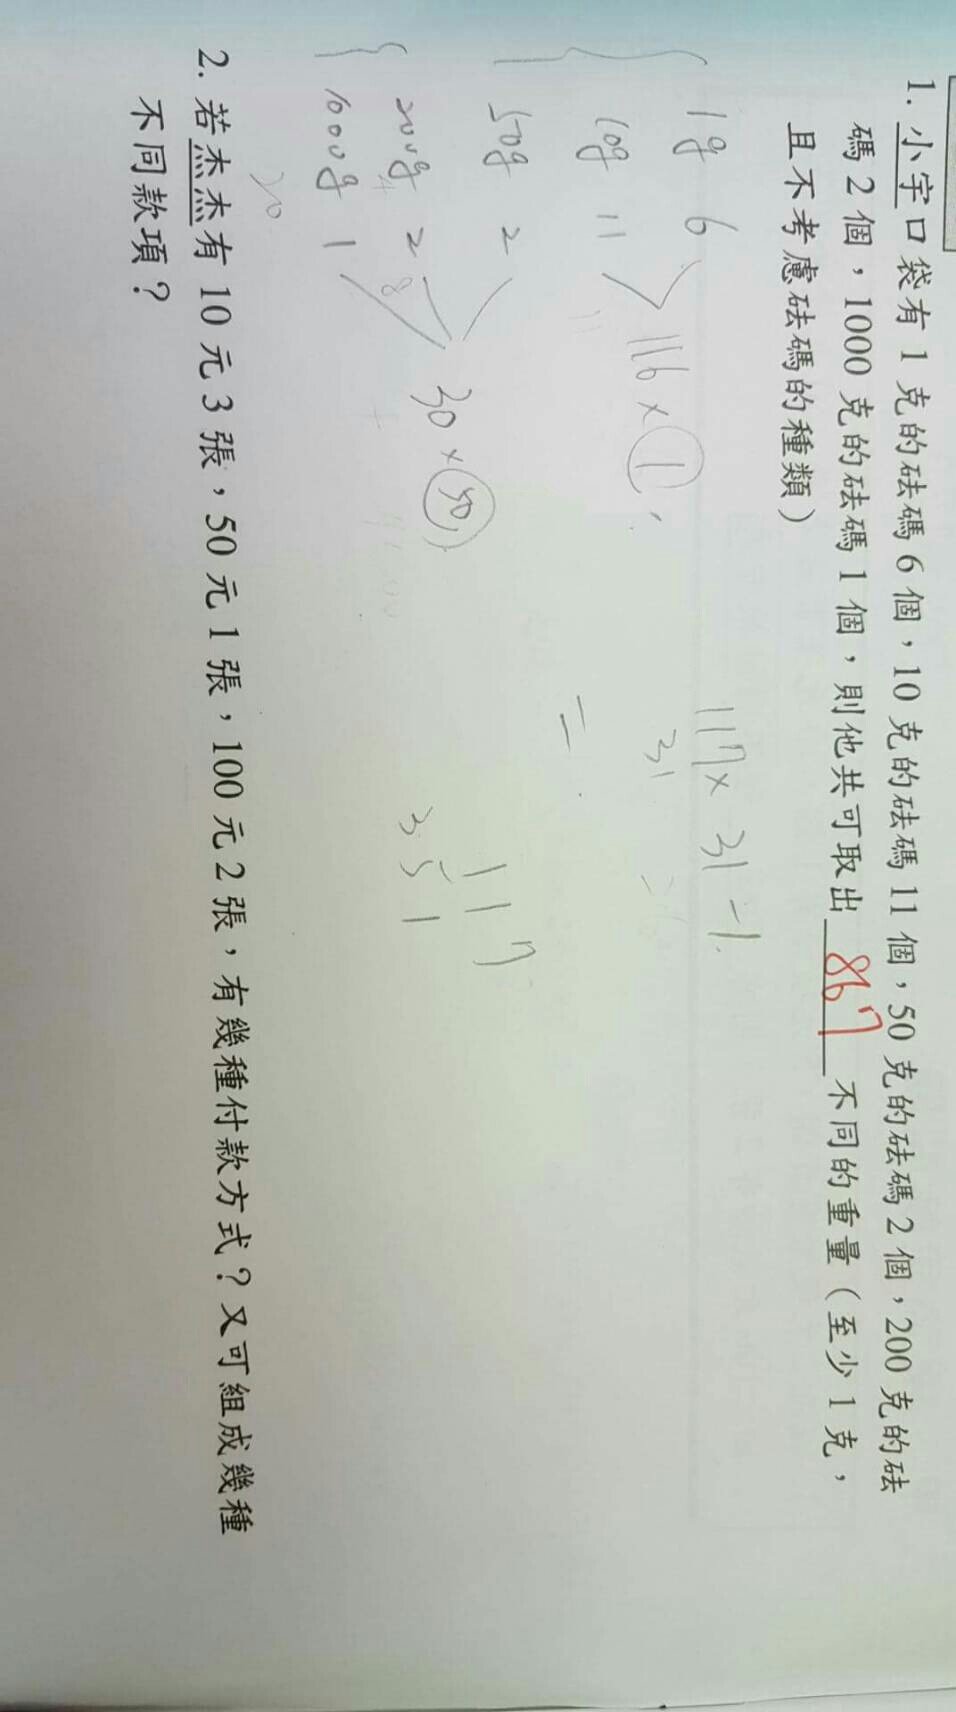 1. 小宇口袋有 1 克的砝碼 6 個，10 克的砝碼 11 個，50 克的砝碼 2 個，200 克的砝
碼 2 個，1000 克的砝碼 1 個，則他共可取出 867 不同的重量（至少 1 克，
且不考慮砝碼的種類）
1g 6
10g 11
116 × 1
50g 2
200g 2
1000g 1
30 × 50
117 × 31 - 1
31
=
117
351
2. 若杰杰有 10 元 3 張，50 元 1 張，100 元 2 張，有幾種付款方式？又可組成幾種
不同款項？